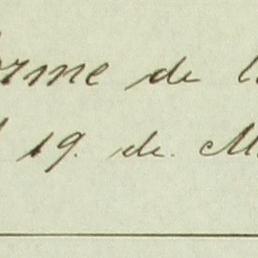 orme de l
19. de. M